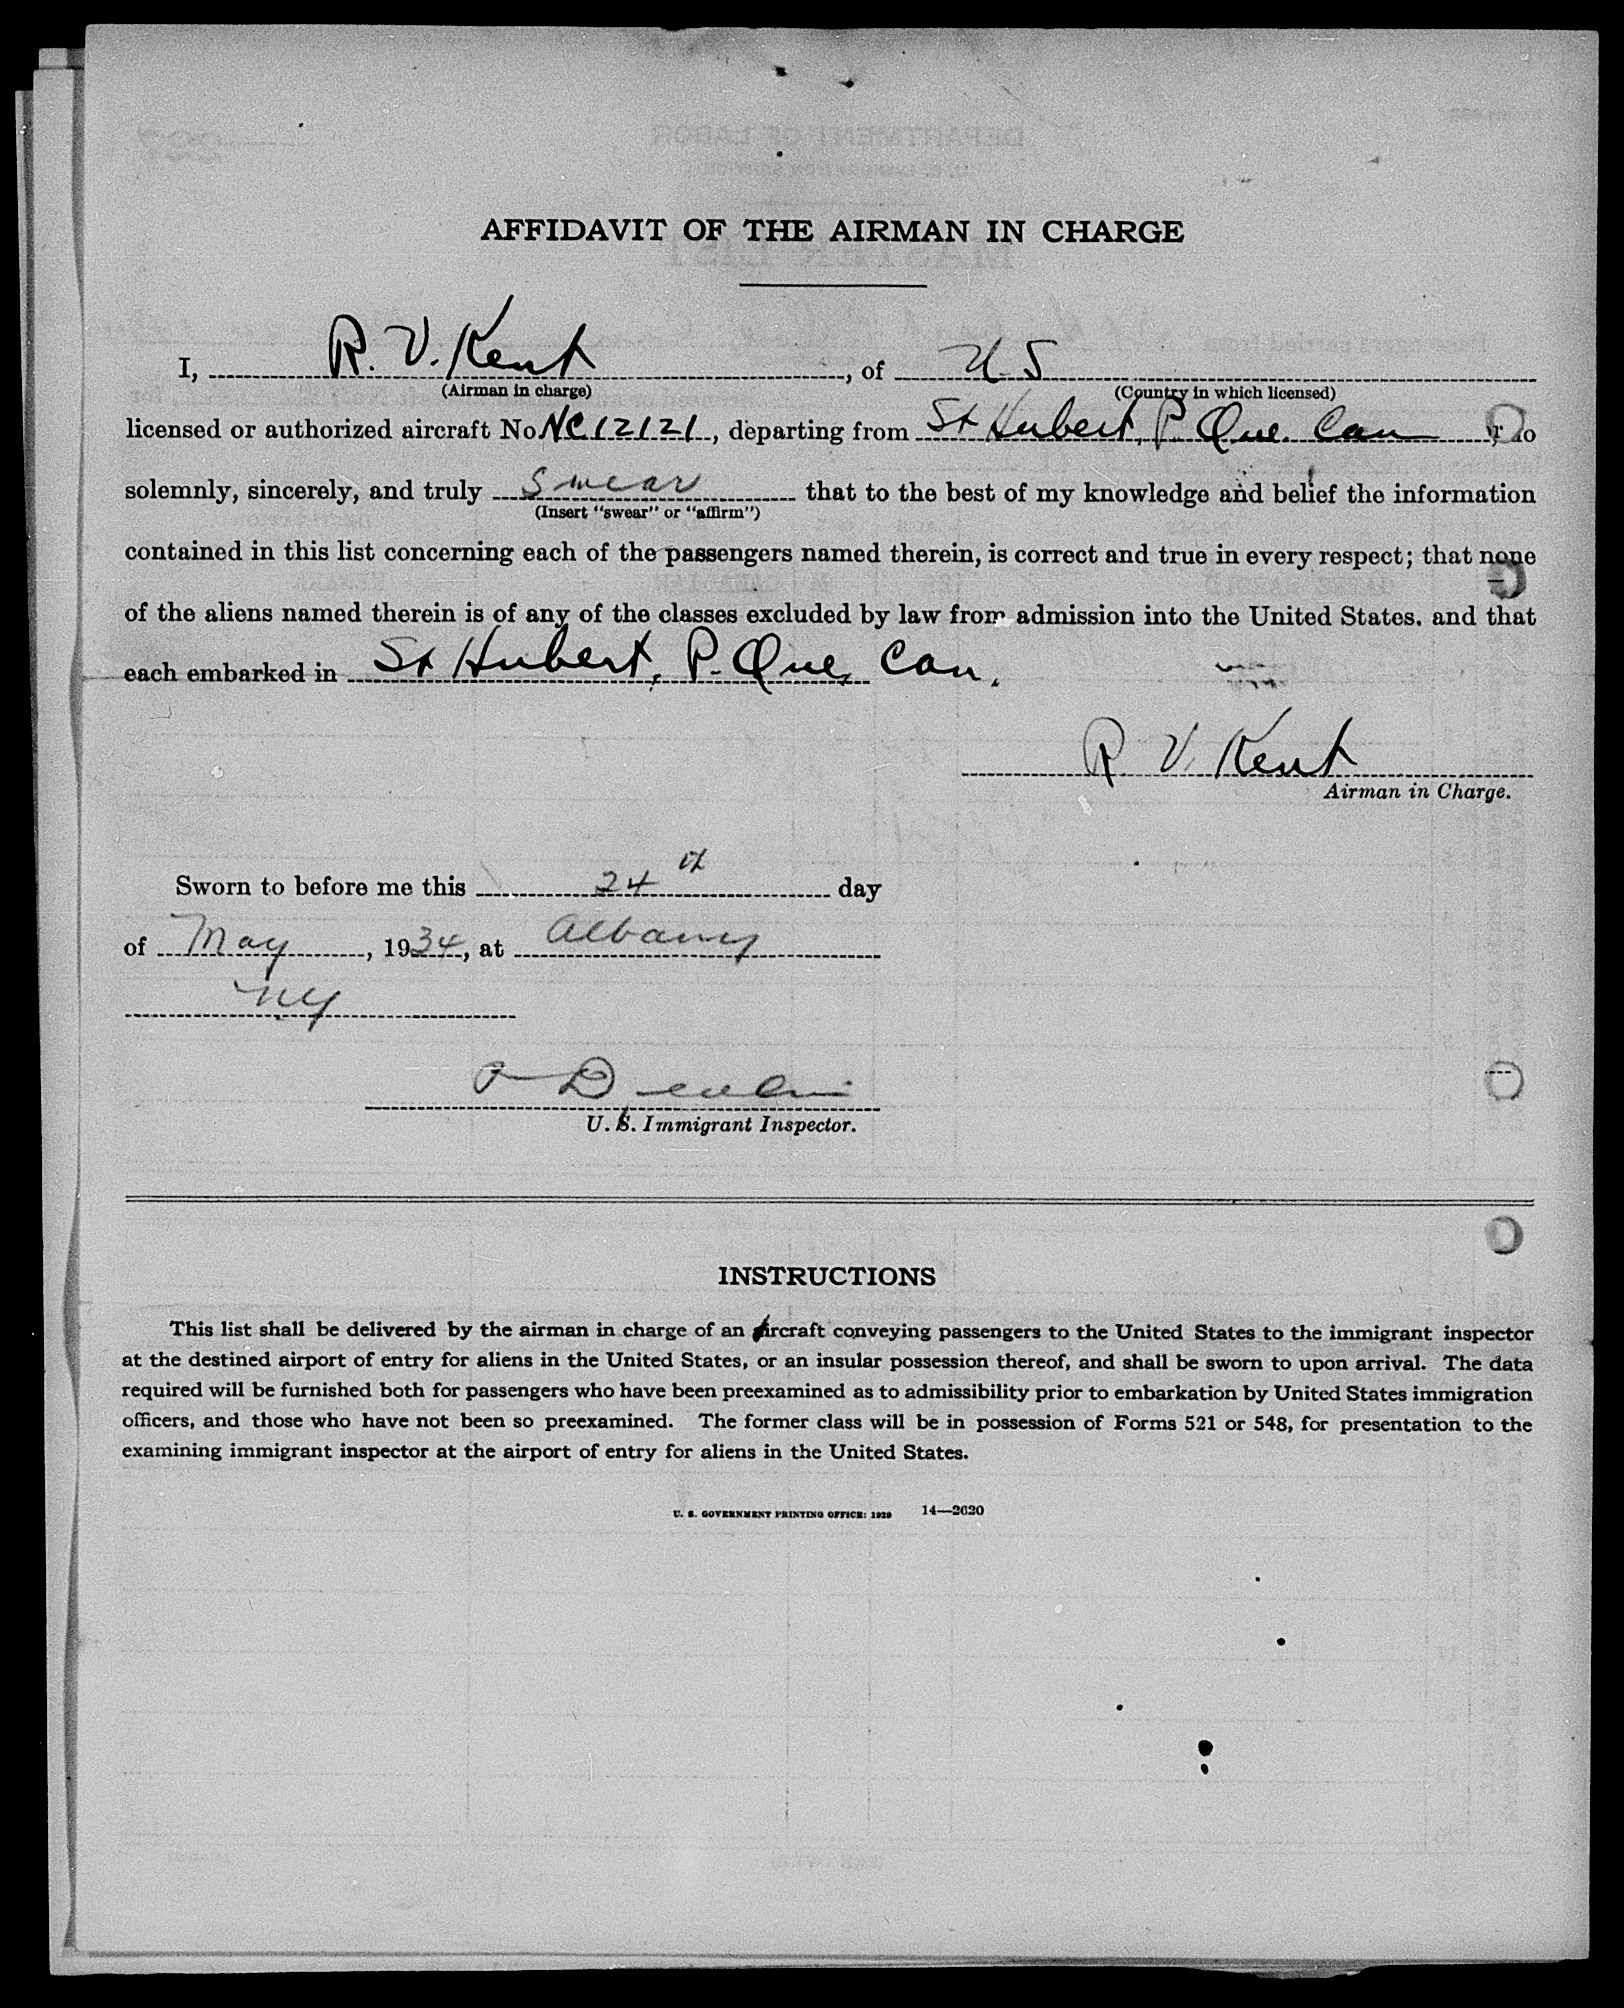 AFFIDAVIT OF THE AIRMAN IN CHARGE
I, R. V. Kent, of U S
(Airman in charge) (Country in which licensed)
licensed or authorized aircraft No. NC12121, departing from St Hubert, P. Que. Can, do
solemnly, sincerely, and truly swear that to the best of my knowledge and belief the information
(Insert "swear" or "affirm")
contained in this list concerning each of the passengers named therein, is correct and true in every respect; that none
of the aliens named therein is of any of the classes excluded by law from admission into the United States. and that
each embarked in St Hubert, P. Que, Can.
R V. Kent
Airman in Charge.
Sworn to before me this 24th day
of May, 1934, at Albany
NY
U. S. Immigrant Inspector.
INSTRUCTIONS
This list shall be delivered by the airman in charge of an aircraft conveying passengers to the United States to the immigrant inspector
at the destined airport of entry for aliens in the United States, or an insular possession thereof, and shall be sworn to upon arrival. The data
required will be furnished both for passengers who have been preexamined as to admissibility prior to embarkation by United States immigration
officers, and those who have not been so preexamined. The former class will be in possession of Forms 521 or 548, for presentation to the
examining immigrant inspector at the airport of entry for aliens in the United States.
U. S. GOVERNMENT PRINTING OFFICE: 1929 14—2620